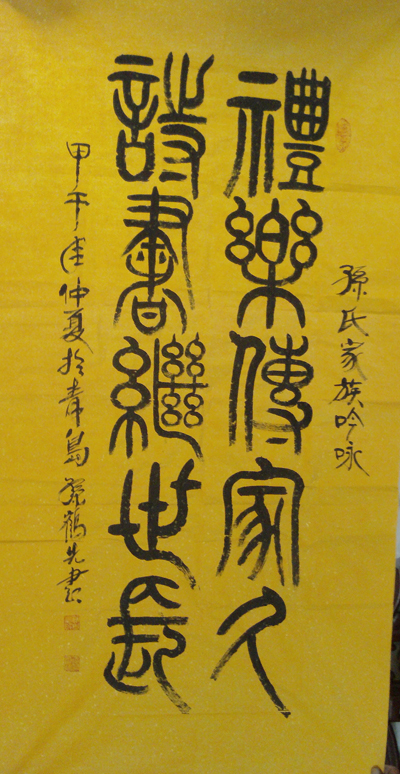 孫氏家族吟咏
禮樂傳家久
詩書繼世長
甲午年仲夏於青島孫鶴先書